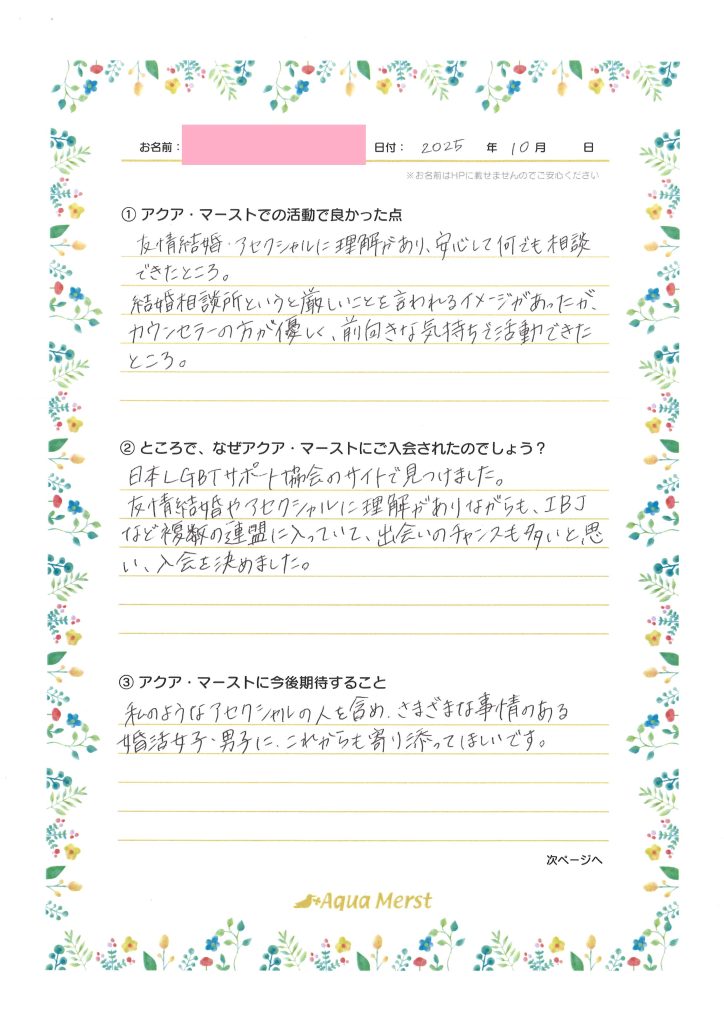 お名前： 日付： 2025 年 10 月 日
※お名前はHPに載せませんのでご安心ください
① アクア・マーストでの活動で良かった点
友情結婚・アセクシャルに理解があり、安心して何でも相談
できたところ。
結婚相談所というと厳しいことを言われるイメージがあったが、
カウンセラーの方が優しく、前向きな気持ちで活動できた
ところ。
② ところで、なぜアクア・マーストにご入会されたのでしょう？
日本LGBTサポート協会のサイトで見つけました。
友情結婚やアセクシャルに理解がありながらも、IBJ
など複数の連盟に入っていて、出会いのチャンスも多いと思
い、入会を決めました。
③ アクア・マーストに今後期待すること
私のようなアセクシャルの人を含め、さまざまな事情のある
婚活女子・男子に、これからも寄り添ってほしいです。
次ページへ
Aqua Merst